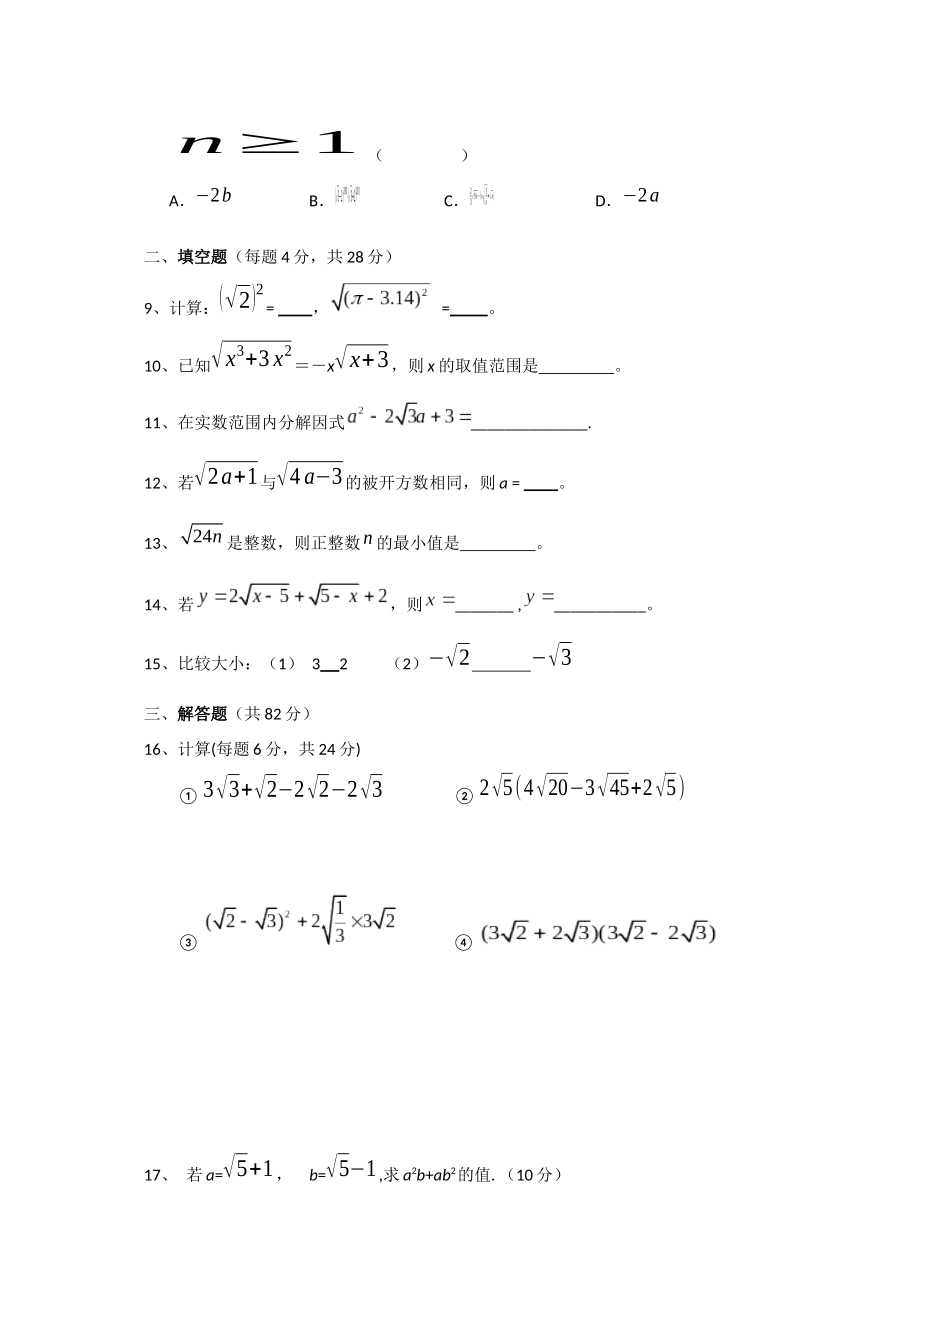 n ≥ 1 （ ）
A．−2b B． C． D．−2a
二、填空题（每题 4 分，共 28 分）
9、计算：(√2)²= ____，√(π − 3.14)² =____。
10、已知√x³+3x²＝−x√x+3，则 x 的取值范围是________。
11、在实数范围内分解因式a² − 2√3a + 3 =______________.
12、若√2a+1与√4a−3的被开方数相同，则 a = ____。
13、√24n是整数，则正整数n的最小值是________。
14、若y = 2√x − 5 + √5 − x + 2，则x =_______ , y =___________。
15、比较大小：（1） 3__2 （2）−√2_______−√3
三、解答题（共 82 分）
16、计算(每题 6 分，共 24 分)
① 3√3+√2−2√2−2√3 ② 2√5(4√20−3√45+2√5)
③ (√2 − √3)² + 2√1/3 ×3√2 ④ (3√2 + 2√3)(3√2 − 2√3)
17、 若 a=√5+1， b=√5−1,求 a²b+ab²的值.（10 分）